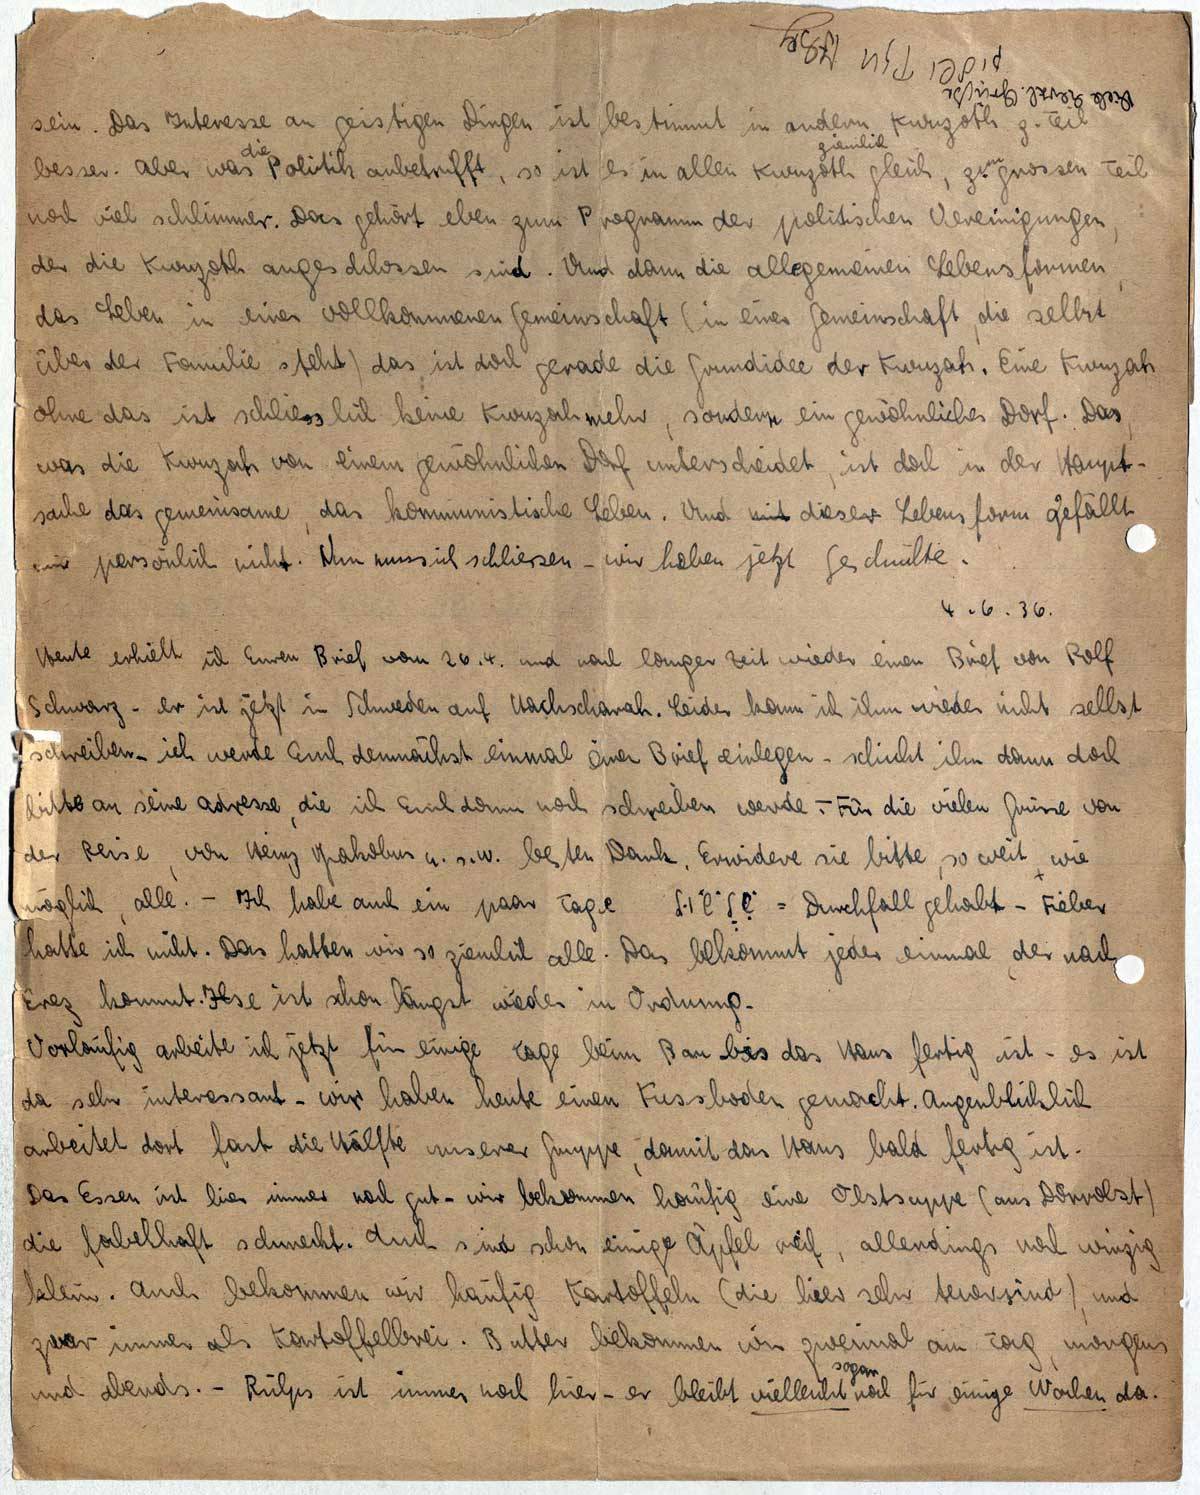 Viele herzl. Grüsse
sein. Das Interesse an geistigen Dingen ist bestimmt in andern Kwuzoth z. Teil
besser. Aber was die Politik anbetrifft, so ist es in allen Kwuzoth ziemlich gleich, zum grossen Teil
noch viel schlimmer. Das gehört eben zum Programm der politischen Vereinigungen,
der die Kwuzoth angeschlossen sind. Und dann die allgemeinen Lebensformen,
das Leben in einer vollkommenen Gemeinschaft (in einer Gemeinschaft, die selbst
über der Familie steht) das ist doch gerade die Grundidee der Kwuzah. Eine Kwuzah
ohne das ist schliesslich keine Kwuzah mehr, sondern ein gewöhnliches Dorf. Das,
was die Kwuzah von einem gewöhnlichen Dorf unterscheidet, ist doch in der Haupt-
sache das gemeinsame, das kommunistische Leben. Und dieser Lebensform gefällt
mir persönlich nicht. Nun muss ich schliessen - wir haben jetzt Geschichte.
4.6.36.
Heute erhielt ich Euren Brief vom 26.4. und nach langer Zeit wieder einen Brief von Rolf
Schwarz - er ist jetzt in Schweden auf Hachscharah. Leider kann ich ihm wieder nicht selbst
schreiben - ich werde Euch demnächst einmal einen Brief einlegen - schickt ihm dann doch
bitte an seine Adresse, die ich Euch dann noch schreiben werde. - Für die vielen Grüsse von
der Reise, von Heinz Jakobus u.s.w. besten Dank. Erwidere sie bitte, so weit wie
möglich, alle. - Ich habe auch ein paar Tage שִׁלְשׁוּל = Durchfall gehabt - Fieber
hatte ich nicht. Das hatten wir so ziemlich alle. Das bekommt jeder einmal, der nach
Erez kommt. Ilse ist schon längst wieder in Ordnung.
Vorläufig arbeite ich jetzt für einige Tage beim Bau bis das Haus fertig ist - es ist
da sehr interessant - wir haben heute einen Fussboden gemacht. Augenblicklich
arbeitet dort fast die Hälfte unserer Gruppe, damit das Haus bald fertig ist.
Das Essen ist hier immer noch gut - wir bekommen häufig eine Obstsuppe (aus Dörrobst)
die fabelhaft schmeckt. Auch sind schon einige Äpfel reif, allerdings noch winzig
klein. Auch bekommen wir häufig Kartoffeln (die hier sehr teuer sind), und
zwar immer als Kartoffelbrei. Butter bekommen wir zweimal am Tag, morgens
und abends. - Rülps ist immer noch hier - er bleibt vielleicht sogar noch für einige Wochen da.